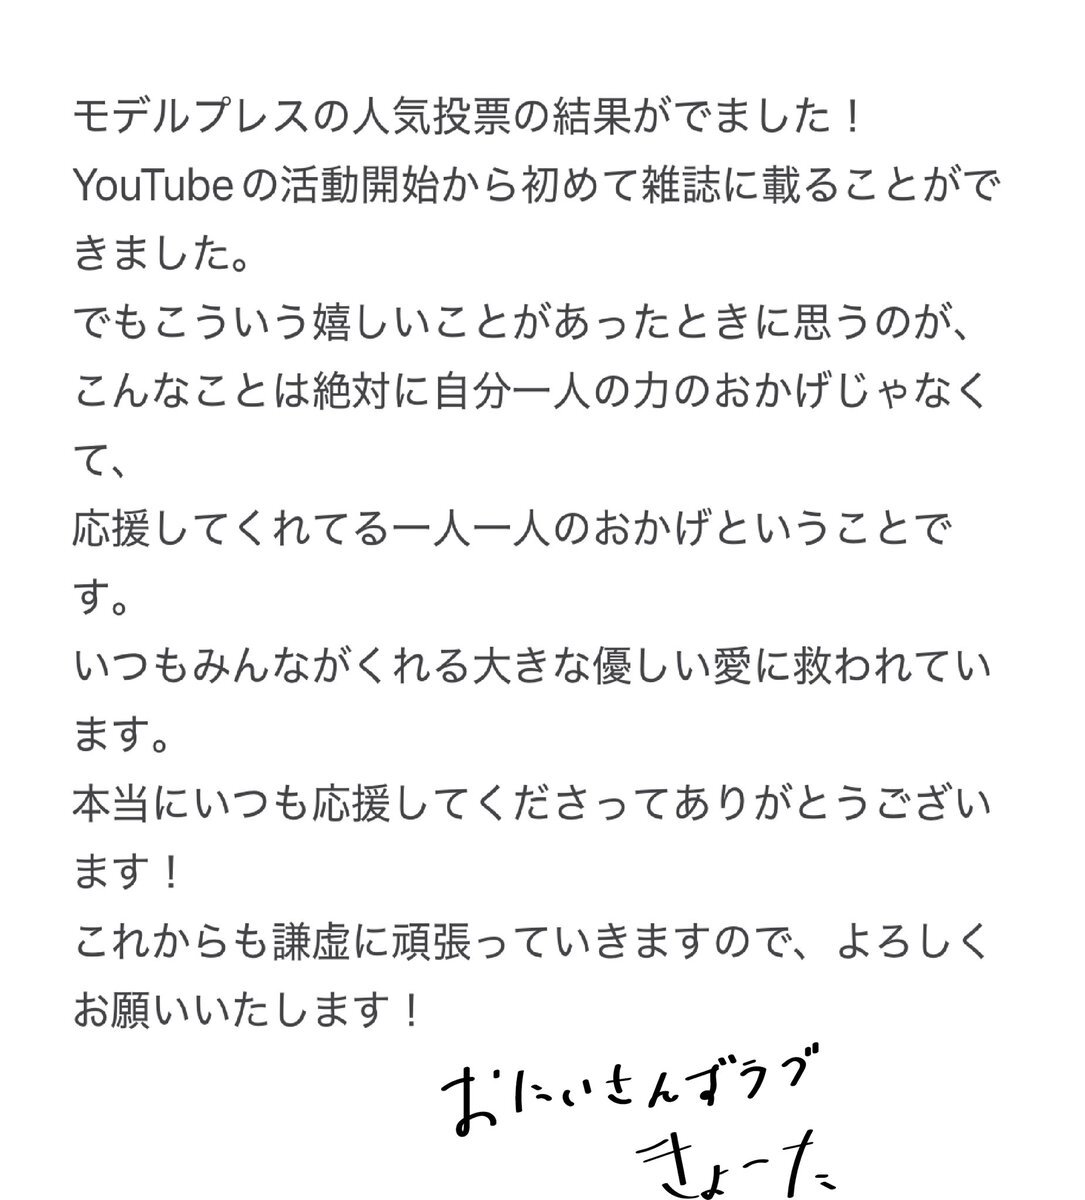 モデルプレスの人気投票の結果がでました！
YouTubeの活動開始から初めて雑誌に載ることがで
きました。
でもこういう嬉しいことがあったときに思うのが、
こんなことは絶対に自分一人の力のおかげじゃなく
て、
応援してくれてる一人一人のおかげということで
す。
いつもみんながくれる大きな優しい愛に救われてい
ます。
本当にいつも応援してくださってありがとうござい
ます！
これからも謙虚に頑張っていきますので、よろしく
お願いいたします！
おにいさんずラブ
きょーた